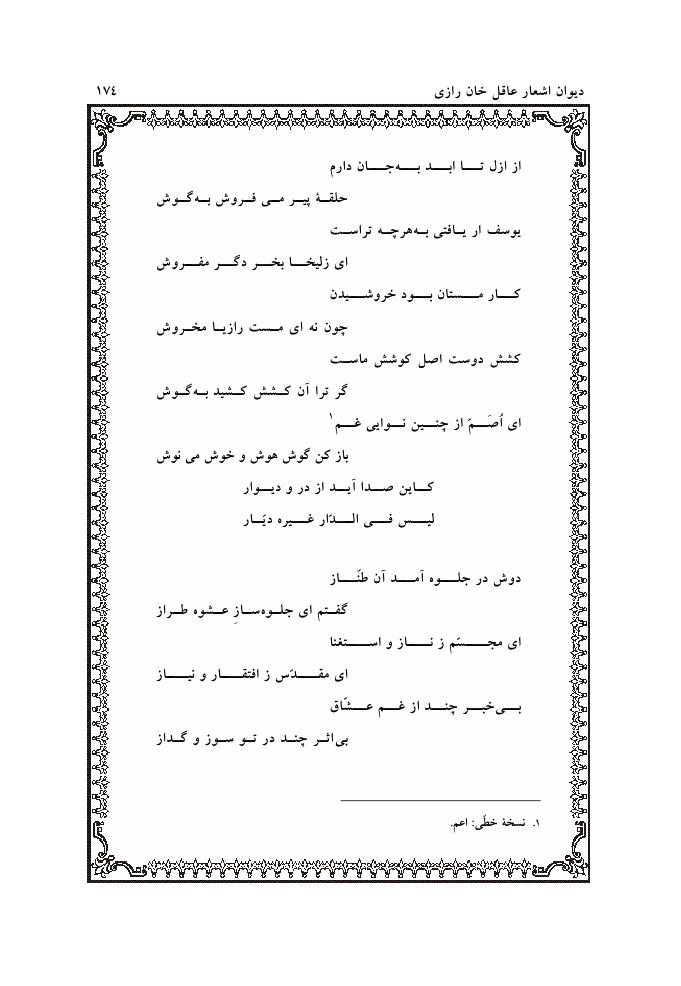 دیوان اشعار عاقل خان رازی ١٧٤
از ازل تا ابد به‌جان دارم
حلقهٔ پیر می فروش به‌گوش
یوسف ار یافتی به‌هرچه تراست
ای زلیخا بخر دگر مفروش
کار مستان بود خروشیدن
چون نه ای مست رازیا مخروش
کشش دوست اصل کوشش ماست
گر ترا آن کشش کشید به‌گوش
ای اُصَمّ از چنین نوایی غم۱
باز کن گوش هوش و خوش می نوش
کاین صدا آید از در و دیوار
لیس فی الدّار غیره دیّار
دوش در جلوه آمد آن طنّاز
گفتم ای جلوه‌سازِ عشوه طراز
ای مجسّم ز ناز و استغنا
ای مقدّس ز افتقار و نیاز
بی‌خبر چند از غم عشّاق
بی‌اثر چند در تو سوز و گداز
۱. نسخهٔ خطّی: اعم.